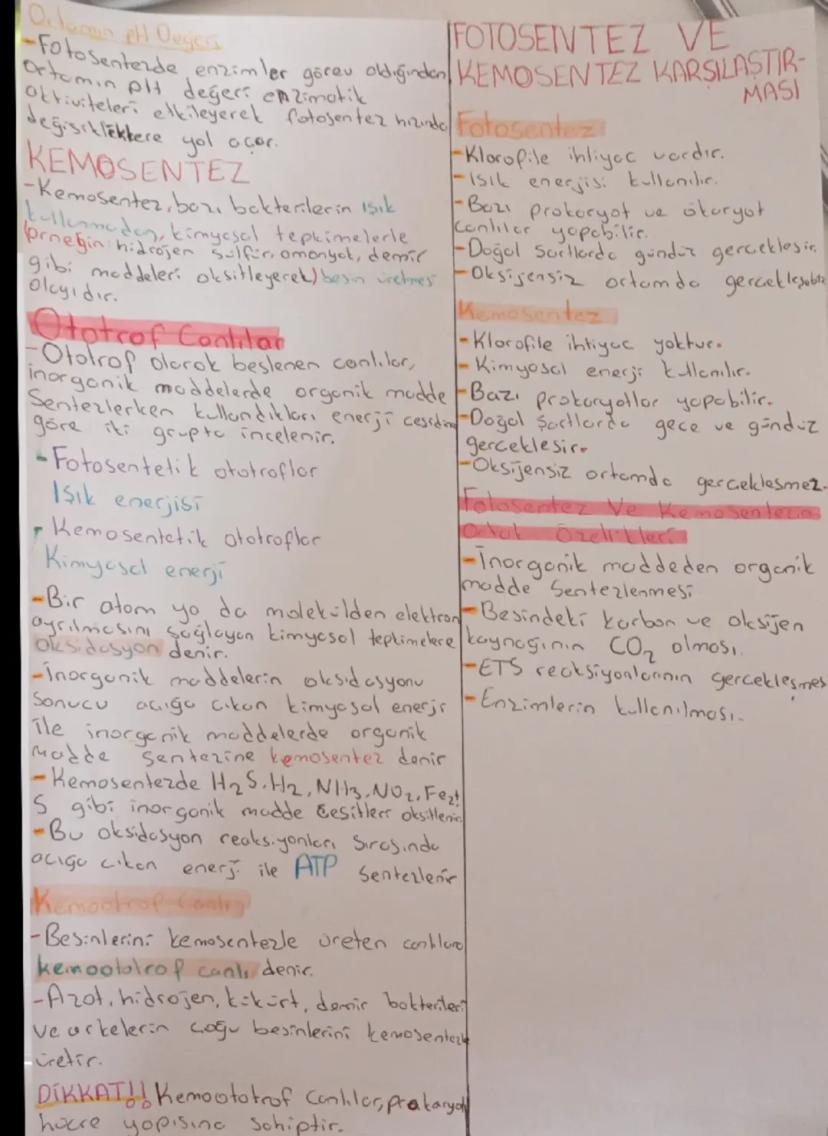 Ortamın pH Değeri
-Fotosentezde enzimler görev aldığından
Ortamın pH değeri enzimatik
aktiviteleri etkileyerek fotosentez hızında
değişikliklere yol açar.
KEMOSENTEZ
-Kemosentez, bazı bakterilerin ışık
kullanmadan, kimyasal tepkimelerle
(örneğin: hidrojen sülfür, amonyak, demir
gibi maddeleri oksitleyerek) besin üretmesi
olayıdır.
Ototrof Canlılar
-Ototrof olarak beslenen canlılar,
inorganik maddelerde organik madde
Sentezlerken kullandıkları enerji çeşidine
göre iki grupta incelenir.
-Fotosentetik ototroflar
Işık enerjisi
-Kemosentetik ototroflar
Kimyasal enerji
-Bir atom ya da molekülden elektron
ayrılmasını sağlayan kimyasal tepkimelere
oksidasyon denir.
-İnorganik maddelerin oksidasyonu
sonucu açığa çıkan kimyasal enerji
ile inorganik maddelerde organik
madde sentezine kemosentez denir
-Kemosentezde H2S, H2, NH3, NO2, Fe2+
S gibi inorganik madde çeşitleri oksitlenir
-Bu oksidasyon reaksiyonları sırasında
açığa çıkan enerji ile ATP sentezlenir
Kemootrof Canlı
-Besinlerini kemosentezle üreten canlılara
kemoototrof canlı denir.
-Azot, hidrojen, kükürt, demir bakterileri
ve arkelerin çoğu besinlerini kemosentezle
üretir.
DİKKAT!! Kemoototrof canlılar, prokaryot
hücre yapısına sahiptir.
FOTOSENTEZ VE
KEMOSENTEZ KARŞILAŞTIR-
MASI
Fotosentez
-Klorofile ihtiyaç vardır.
-Işık enerjisi kullanılır.
-Bazı prokaryot ve ökaryot
canlılar yapabilir.
-Doğal şartlarda gündüz gerçekleşir.
-Oksijensiz ortamda gerçekleşebilir
Kemosentez
-Klorofile ihtiyaç yoktur.
-Kimyasal enerji kullanılır.
-Bazı prokaryotlar yapabilir.
-Doğal Şartlarda gece ve gündüz
gerçekleşir.
-Oksijensiz ortamda gerçekleşmez.
Fotosentez Ve Kemosentezin
Ortak Özelikleri
-İnorganik maddeden organik
madde Sentezlenmesi
-Besindeki karbon ve oksijen
kaynağının CO2 olması.
-ETS reaksiyonlarının gerçekleşmes
-Enzimlerin kullanılması.